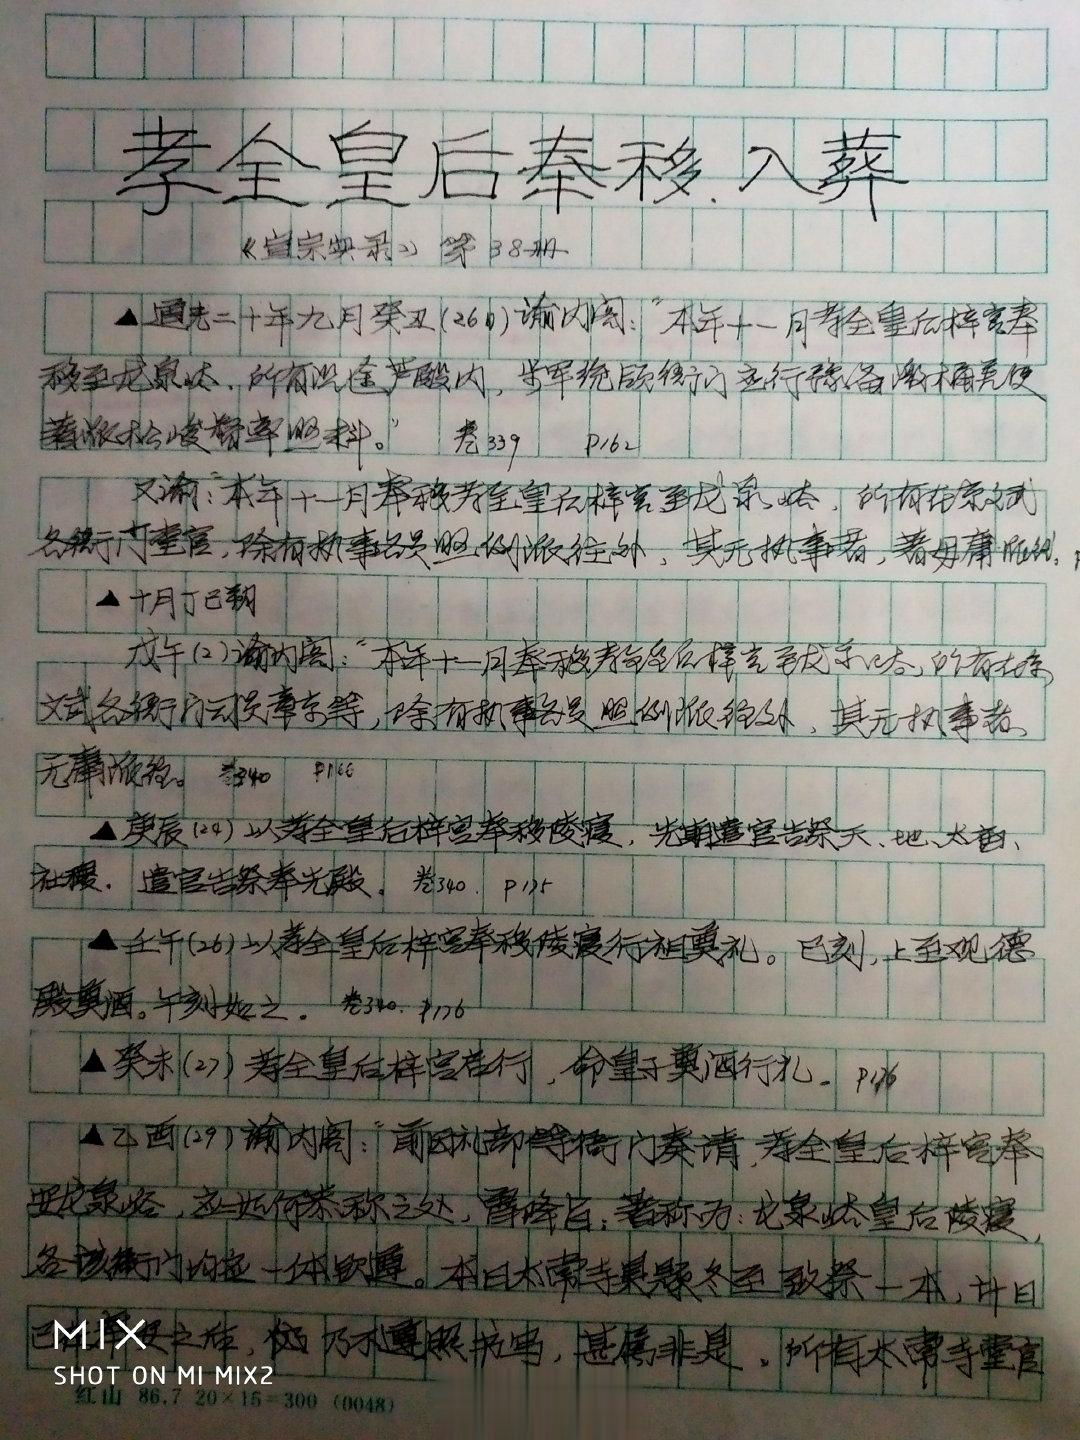 孝全皇后奉移、入葬
《宣宗实录》 第38册
▲道光二十年九月癸丑(26日)谕内阁:“本年十一月孝全皇后梓宫奉
移至龙泉峪,所有沿途芦殿内,步军统领衙门应行豫备激桶羌使
著派松峻督率照料。” 卷339 P162
又谕:“本年十一月奉移孝全皇后梓宫至龙泉峪,所有在京文武
各衙门堂官,除有执事各员照例派往外,其无执事者,著毋庸派往。
▲十月丁巳朔
戊午(2)谕内阁:“本年十一月奉移孝全皇后梓宫至龙泉峪,所有在京
文武各衙门司员章京等,除有执事各员照例派往外,其无执事者,
无庸派往。 卷340 P166
▲庚辰(24)以孝全皇后梓宫奉移陵寝,先期遣官告祭天、地、太庙、
社稷.遣官告祭奉先殿。 卷340. P175
▲壬午(26)以孝全皇后梓宫奉移陵寝行祖奠礼。巳刻,上至观德
殿奠酒。午刻如之. 卷340. P176
▲癸未(27)孝全皇后梓宫启行,命皇子奠酒行礼. P176
▲乙酉(29)谕内阁:“前因礼部等衙门奏请,孝全皇后梓宫奉
安龙泉峪,应如何恭称之处,曾降旨:著称为:龙泉峪皇后陵寝,
各该衙门均应一体钦遵。本日太常寺具题冬至致祭一本,廿日
已在降旨之后,仍乃不遵照书写,甚属非是.所有太常寺堂官
MIX
SHOT ON MI MIX2
红山 86.7 20×15=300 (0048)